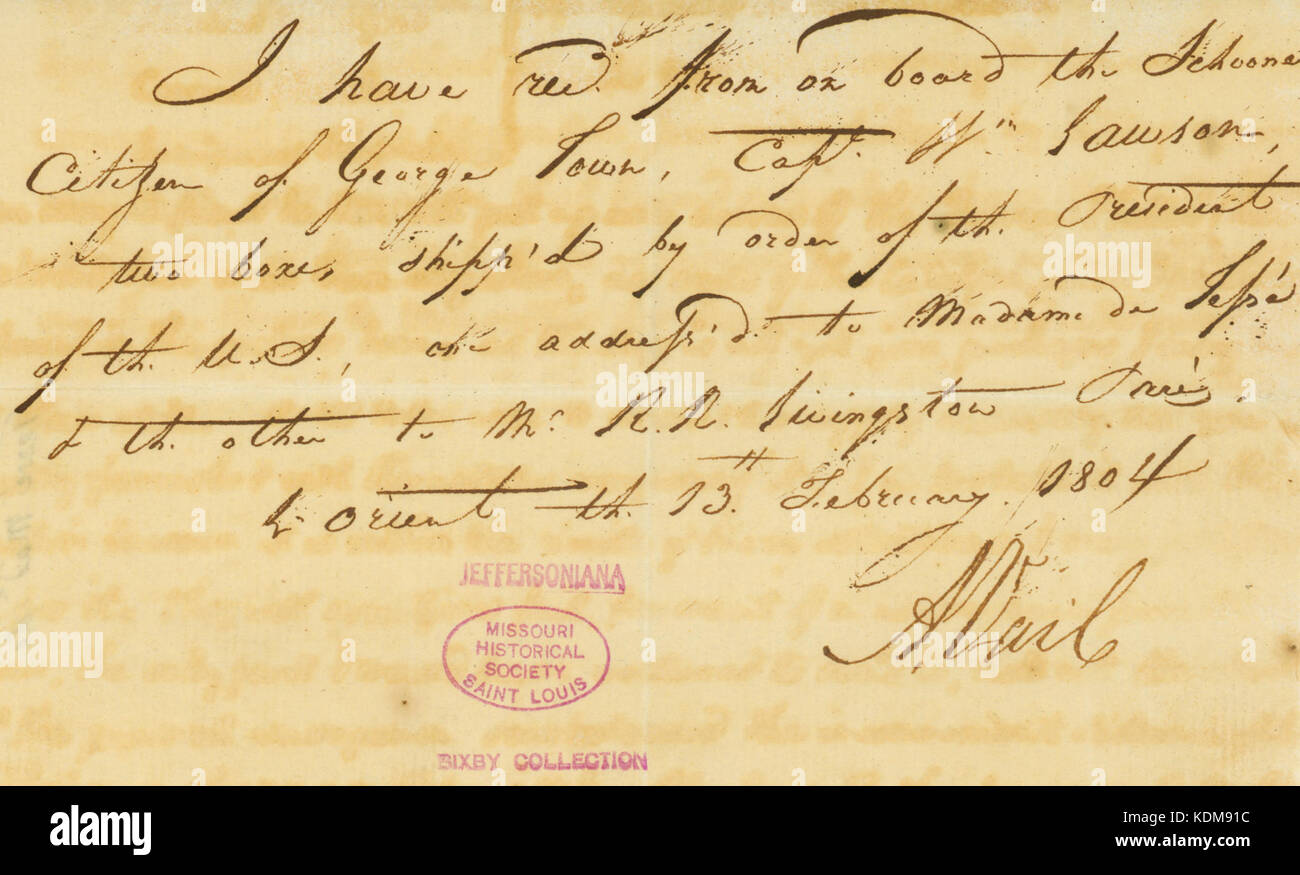 I have rec'd. from on board the Schoone
Citizen of George Town, Capt. Wm Lawson,
two boxes shipp'd by order of the President
of the U.S., one address'd to Madame de Tessé
& the other to Mr. R. R. Livingston Paris.
L'Orient the 13th February. 1804
A Vail
JEFFERSONIANA
MISSOURI
HISTORICAL
SOCIETY
SAINT LOUIS
BIXBY COLLECTION
alamy
alamy
Image ID: KDM91C
www.alamy.com